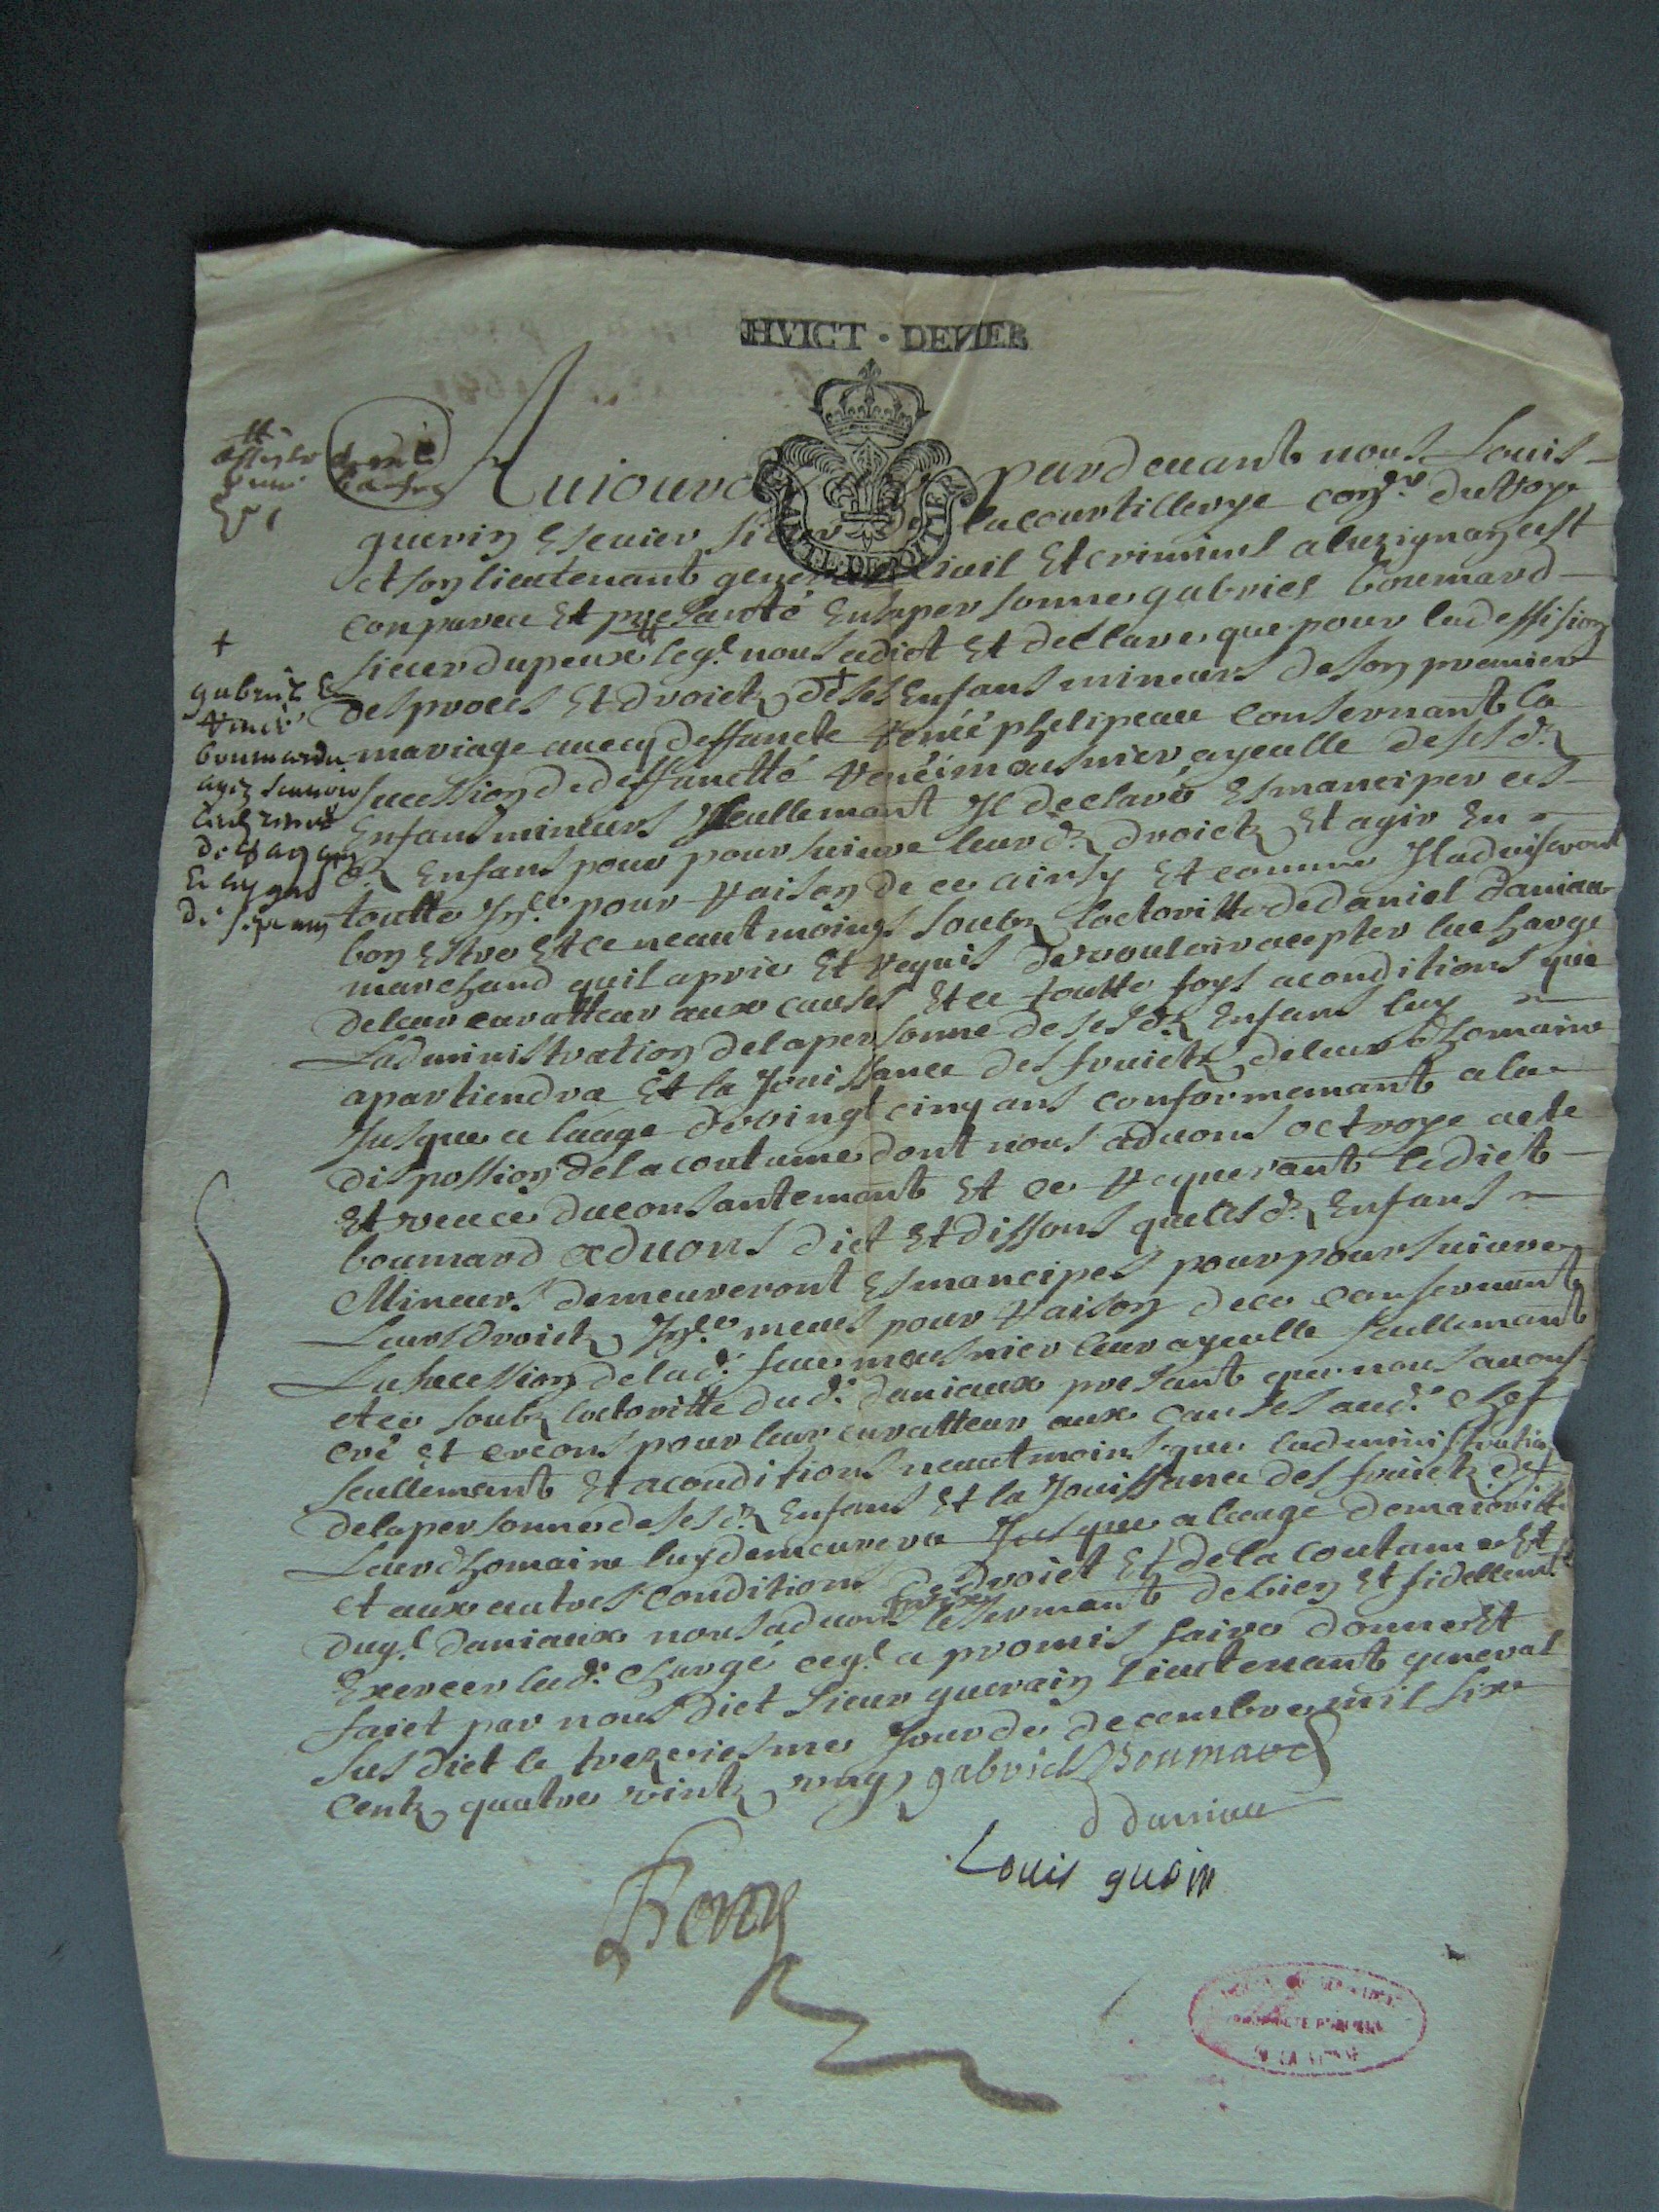 HVICT · DENIER
Auiourd pardeuant nous Louis
guerin Escuier sieur de lacourtillerye con.er du Roye
et son lieutenant general Ciuil Et criminel a lusignan est
conparu Et presanté En sa personne gabriel boumard
sieur dupeux leq.l nous a dict Et declare que pour la deffision
des proces Et droictz de ses Enfans mineurs de son premier
mariage auecq deffuncte Renée phelipeau consernant la
sucession de deffunctte Renée meusnier ayeulle deses d.
Enfans mineurs seullemant Il declare Esmanciper ces
d. Enfans pour poursuiure leur d. droictz Et agir En
toutte pour Raison de ce ainsy Et comme Il aduiseront
bon Estre Et ce neautmoings soubz loctoritte de daniel daniau
marchand quil a prie Et Requis de vouloir accepter la charge
de leur curatteur aux causes Et ce toutte foys a conditions que
Ladministration de la personne de ses d. Enfans luy
apartiendra Et la Jouissance des fruictz de leur dhomaine
Jusque a laage de vingt cinq ans conformemant a la
dispossion de la coutume dont nous aduons octroye acte
Et veu ce du consantemant Et ce Requerant ledict
boumard aduons dict Et dissons que les d. Enfans
Mineurs demeureront Esmancipes pour poursuiure
Leurs droictz meues pour Raison de ce consernant
La sucession de lad. feue meusnier leur ayeulle seullemant
et ce soubz loctoritte dud. daniaux presant que nous auons
cré et creons pour leur curatteur aux causes aud. chef
seullemant Et a conditions neautmoins que ladministration
de la personne de ses d. Enfans Et la Jouissance des fruictz de
Leur dhomaine luy demeurera Jusque a laage de maioritte
et aux autres conditions de droict Et de la coutume Et
duq.l daniaux nous aduons pris le sermant de bien Et fidellemt
Exercer lad. charge ceq.l a promis faire donne Et
faict par nous dict sieur guerain lieutenant general
susdict le trezeiesme Jour de decembre mil six
centz quatre vintz vng gabriel Boumard
D daniau
Louis guerin
+
gabriel &
Renée
boumardz